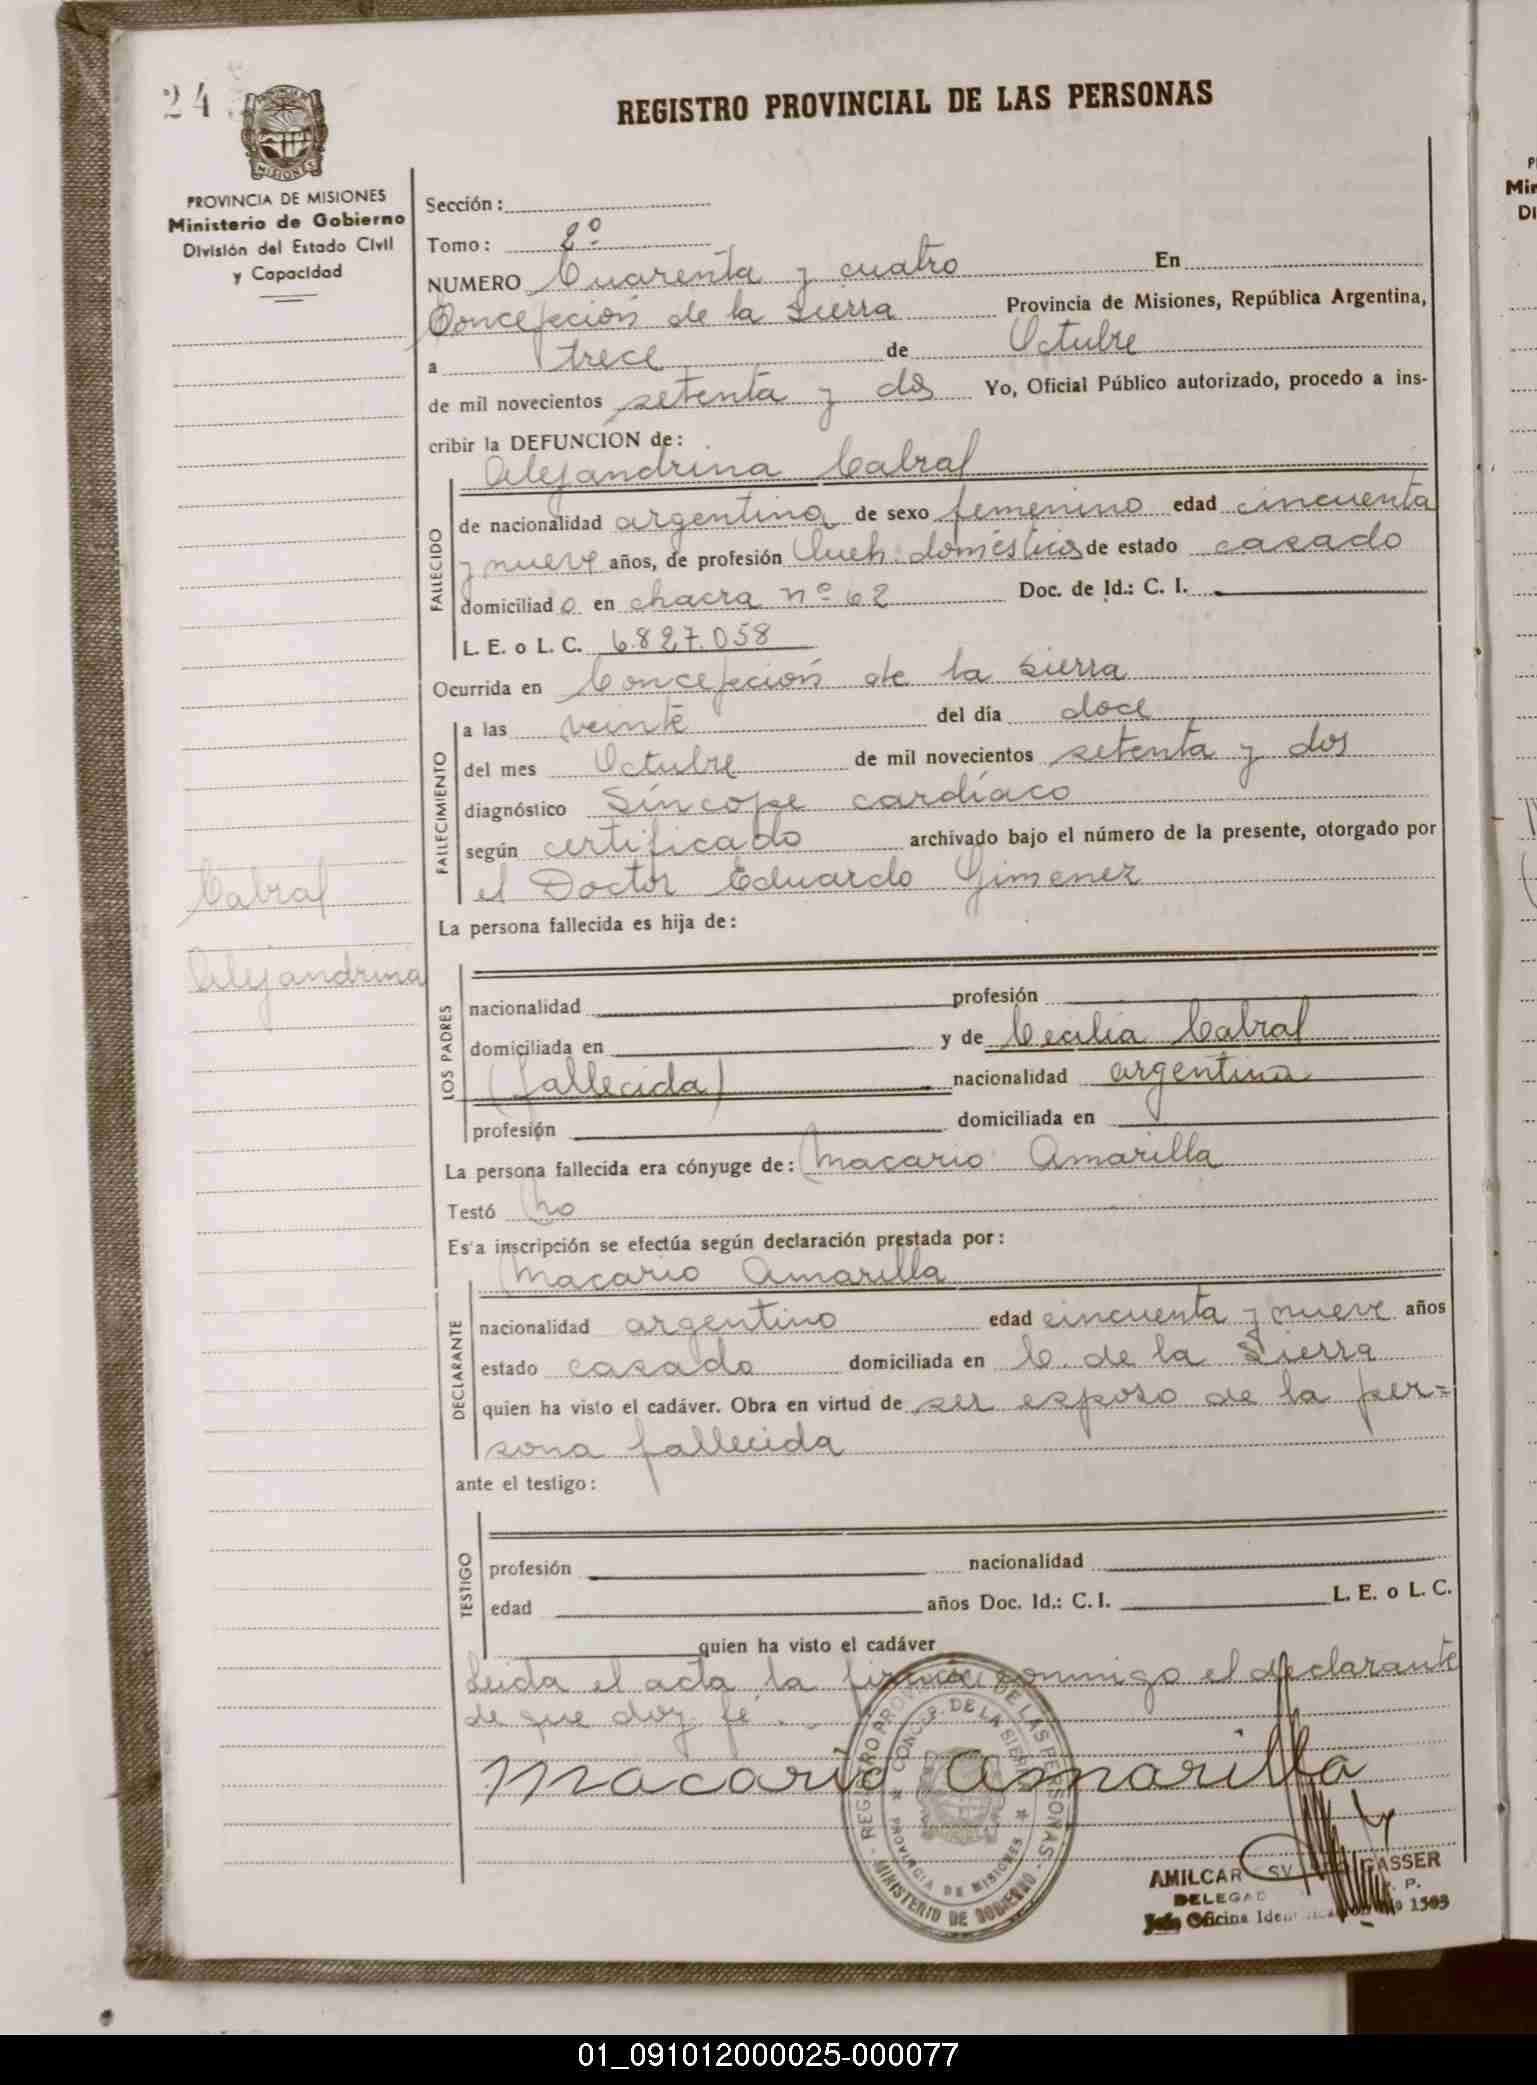 24
REGISTRO PROVINCIAL DE LAS PERSONAS
PROVINCIA DE MISIONES
Ministerio de Gobierno
División del Estado Civil
y Capacidad
Sección:
Tomo: 2º
NUMERO Cuarenta y cuatro En
Concepción de la Sierra Provincia de Misiones, República Argentina,
a trece de Octubre
de mil novecientos setenta y dos Yo, Oficial Público autorizado, procedo a ins-
cribir la DEFUNCION de:
Alejandrina Cabral
FALLECIDO
de nacionalidad argentina de sexo femenino edad cincuenta
y nueve años, de profesión Queh. domésticos de estado casado
domiciliado en chacra nº 62 Doc. de Id.: C. I.
L. E. o L. C. 6.827.058
Ocurrida en Concepción de la Sierra
FALLECIMIENTO
a las veinte del día doce
del mes Octubre de mil novecientos setenta y dos
diagnóstico Síncope cardíaco
según certificado archivado bajo el número de la presente, otorgado por
el Doctor Eduardo Gimenez
Cabral
Alejandrina
La persona fallecida es hija de:
LOS PADRES
nacionalidad profesión
domiciliada en y de Cecilia Cabral
(fallecida) nacionalidad argentina
profesión domiciliada en
La persona fallecida era cónyuge de: Macario Amarilla
Testó No
Es'a inscripción se efectúa según declaración prestada por:
Macario Amarilla
DECLARANTE
nacionalidad argentino edad cincuenta y nueve años
estado casado domiciliada en C. de la Sierra
quien ha visto el cadáver. Obra en virtud de ser esposo de la per=
sona fallecida
ante el testigo:
TESTIGO
profesión nacionalidad
edad años Doc. Id.: C. I. L. E. o L. C.
quien ha visto el cadáver
Leida el acta la firma conmigo el declarante
de que doy fé.
Macario Amarilla
REGISTRO PROVINCIAL DE LAS PERSONAS
MINISTERIO DE GOBIERNO
CONCEP. DE LA SIERRA
PROVINCIA DE MISIONES
AMILCAR GASSER
DELEGAD
Jefe Oficina 1503
P
Min
Di
01_091012000025-000077